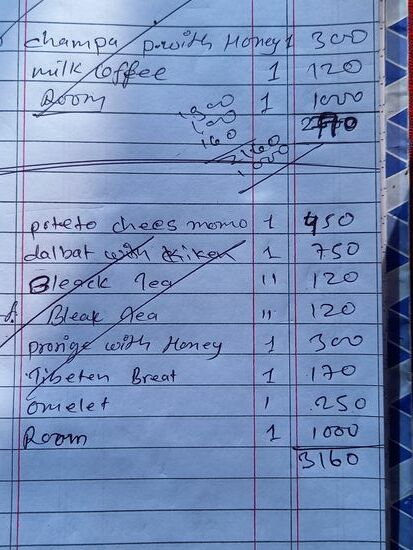 champa p.with Honey 1 300
milk Coffee 1 120
Room 1 1000
160
poteto chees momo 1 450
dalbat with Kiken 1 750
Bleack Tea " 120
Bleak Tea " 120
prorige with Honey 1 300
Tibeten Breat 1 170
omelet 1 250
Room 1 1000
3160